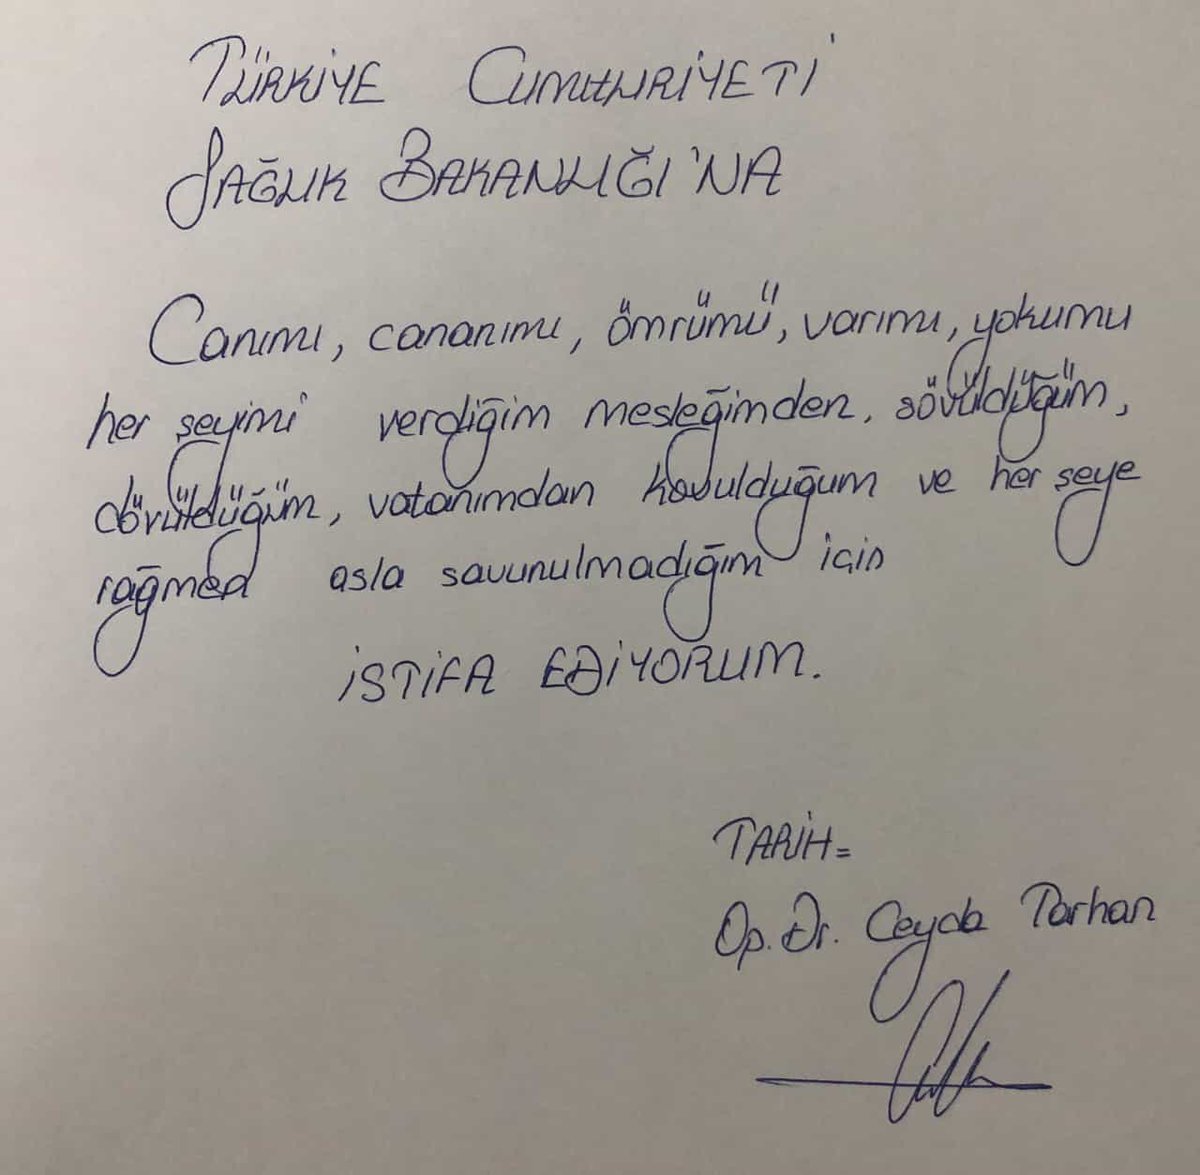 TÜRKİYE CUMHURİYETİ
SAĞLIK BAKANLIĞI'NA
Canımı, cananımı, ömrümü, varımı, yokumu
her şeyimi verdiğim mesleğimden, sövüldüğüm,
dövüldüğüm, vatanımdan kovulduğum ve her şeye
rağmen asla savunulmadığım için
İSTİFA EDİYORUM.
TARİH=
Op. Dr. Ceyda Tarhan